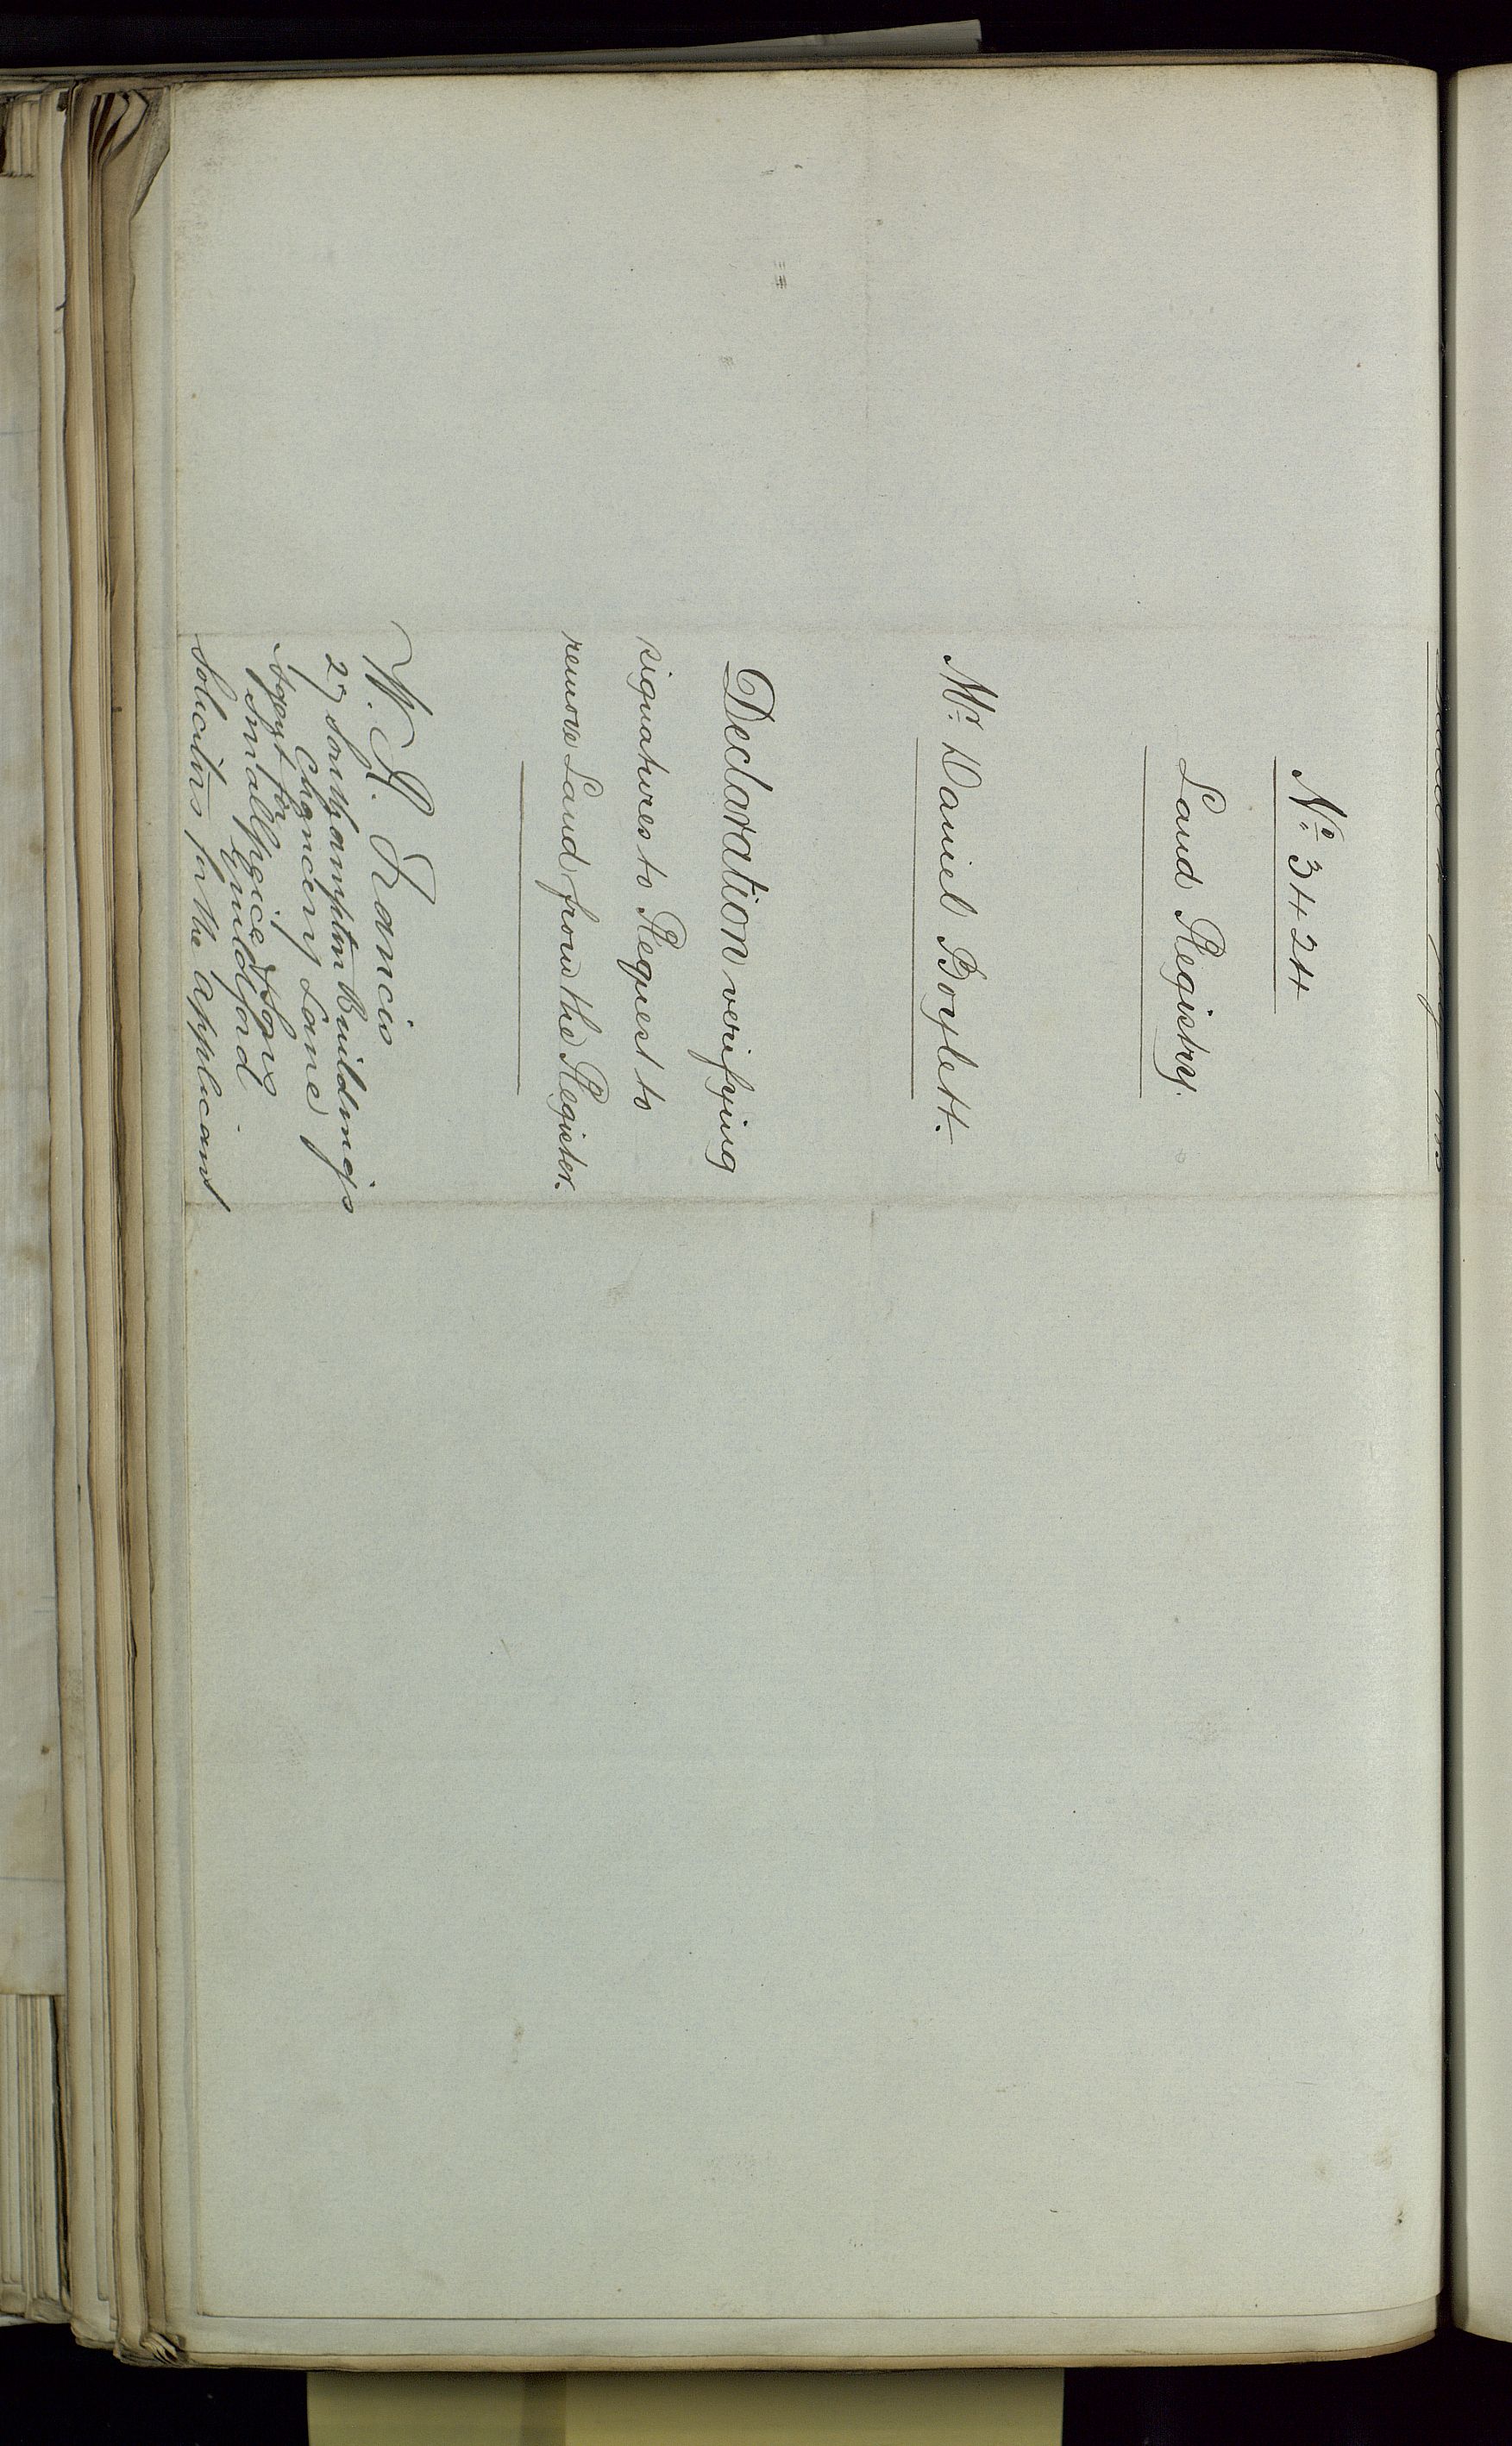 No. 3424
Land Registry.
Mr. Daniel Boylett.
Declaration verifying
signatures to Request to
remove Land from the Register.
W. A. Francis
27 Southampton Buildings
Chancery Lane
Agent for
Smallpeice & Sons
Guildford.
Solicitors for the Applicant